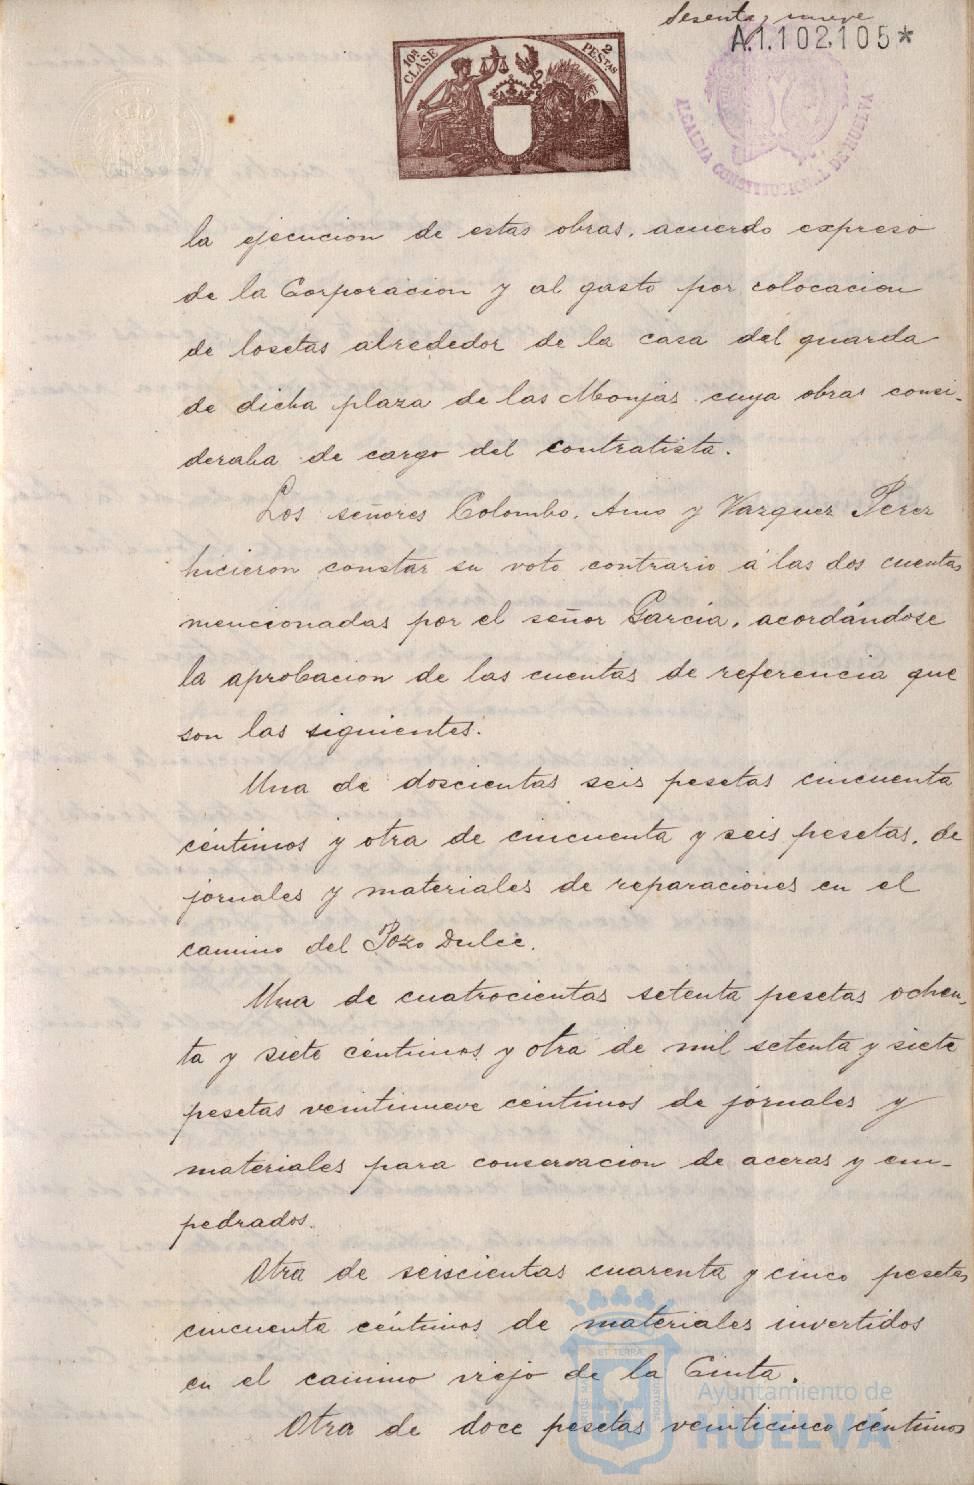 Sesenta y nueve
A.1.102,105*
10ª CLASE
2 PESTAS
ALCALDIA CONSTITUCIONAL DE HUELVA
la ejecucion de estas obras, acuerdo expreso
de la Corporacion y al gasto por colocacion
de losetas alrededor de la casa del guarda
de dicha plaza de las Monjas cuya obras consi-
deraba de cargo del contratista.
Los señores Colombo, Amo y Vazquez Perez
hicieron constar su voto contrario á las dos cuentas
mencionadas por el señor Garcia, acordándose
la aprobacion de las cuentas de referencia que
son las siguientes.
Una de doscientas seis pesetas cincuenta
céntimos y otra de cincuenta y seis pesetas, de
jornales y materiales de reparaciones en el
camino del Pozo Dulce.
Una de cuatrocientas setenta pesetas ochen-
ta y siete céntimos y otra de mil setenta y siete
pesetas veintinueve céntimos de jornales y
materiales para conservacion de aceras y em-
pedrados.
Otra de seiscientas cuarenta y cinco pesetas
cincuenta céntimos de materiales invertidos
en el camino viejo de la Cinta.
Otra de doce pesetas veinticinco céntimos
Ayuntamiento de
HUELVA